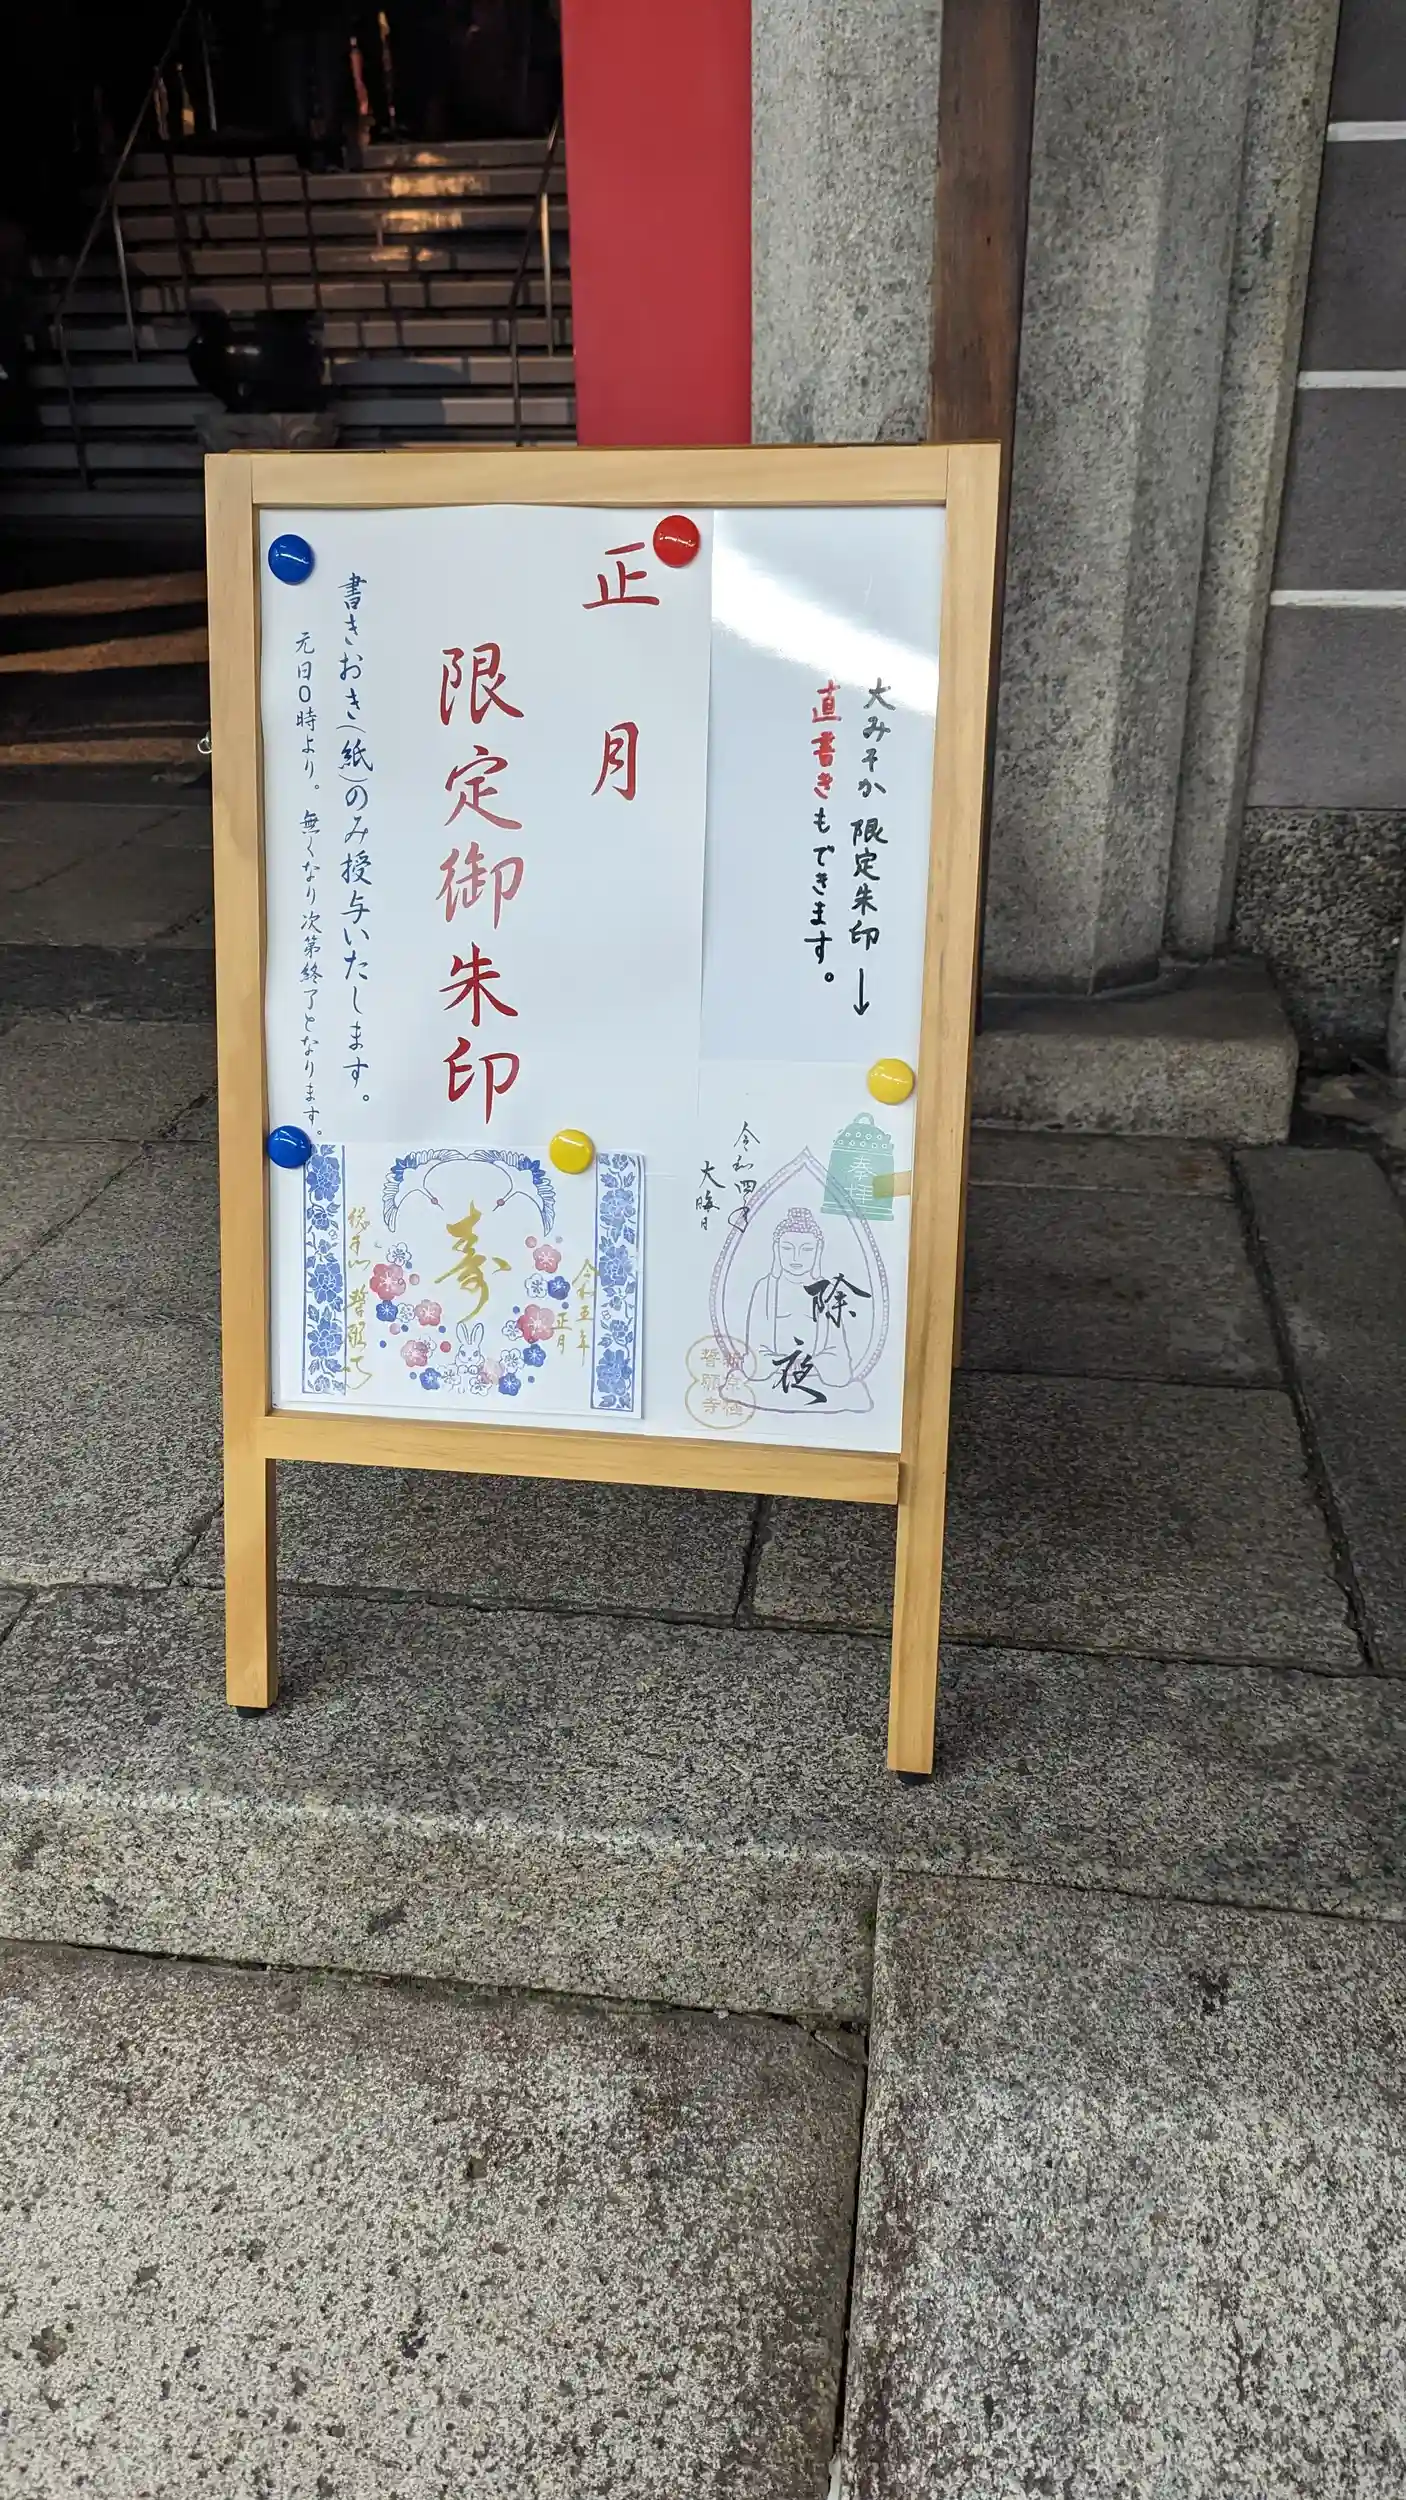 大みそか 限定朱印↓
直書きもできます。
正月
限定御朱印
書きおき(紙)のみ授与いたします。
元日0時より。無くなり次第終了となります。
奉拝
除夜
令和四年
大晦日
新京極
誓願寺
令和五年
正月
寿
誓願寺